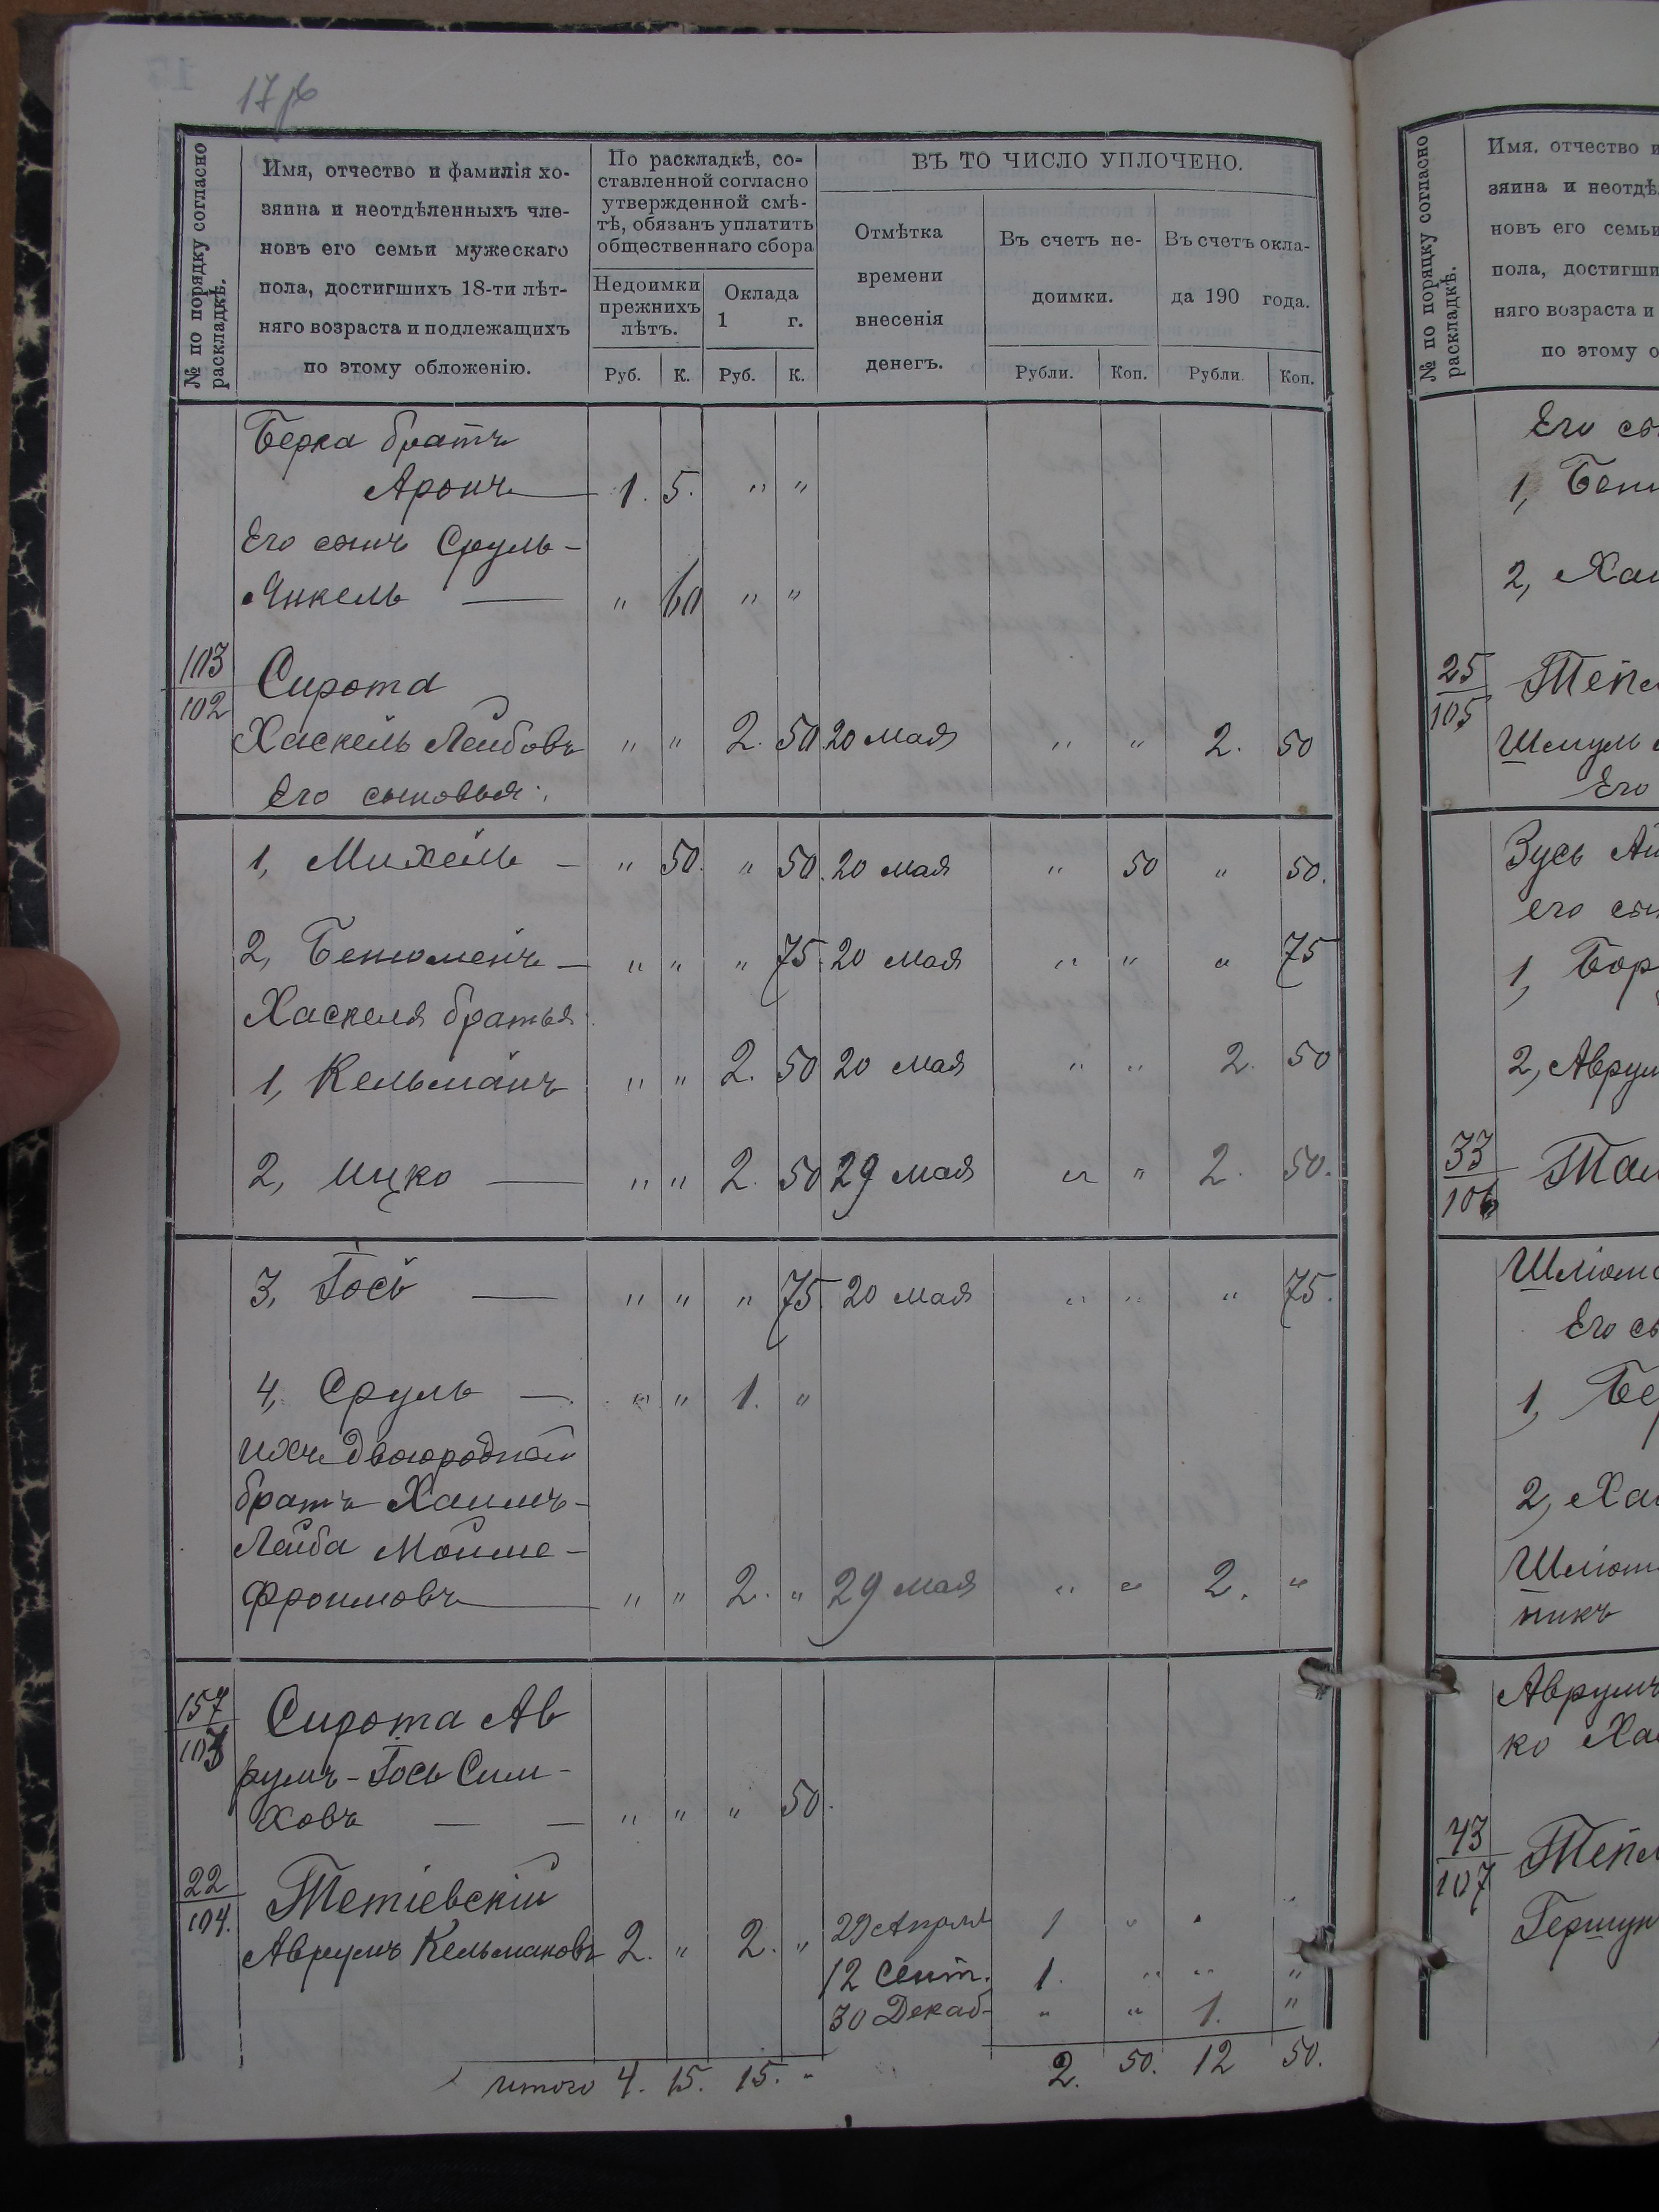 17 об
№ по порядку согласно раскладкѣ.
Имя, отчество и фамилія хо-
зяина и неотдѣленныхъ чле-
новъ его семьи мужескаго
пола, достигшихъ 18-ти лѣт-
няго возраста и подлежащихъ
по этому обложенію.
По раскладкѣ, со-
ставленной согласно
утвержденной смѣ-
тѣ, обязанъ уплатить
общественнаго сбора
Недоимки
прежнихъ
лѣтъ.
Оклада
1 г.
Руб. К. Руб. К.
ВЪ ТО ЧИСЛО УПЛОЧЕНО.
Отмѣтка
времени
внесенія
денегъ.
Въ счетъ не-
доимки.
Въ счетъ окла-
да 190 года.
Рубли. Коп. Рубли. Коп.
Берка братъ
Аронъ — 1. 5. " "
Его сынъ Сруль-
Янкель — " 60 " "
103
102
Сирота
Хаскель Лейбовъ " " 2. 50 20 мая " " 2. 50
Его сыновья:
1, Михель — " 50. " 50. 20 мая " 50 " 50.
2, Бенюменъ — " " " 75. 20 мая " " " 75
Хаскеля братья
1, Кельманъ " " 2. 50 20 мая " " 2. 50
2, Ицко — " " 2. 50 29 мая " " 2. 50.
3, Іось — " " " 75. 20 мая " " " 75.
4, Сруль — " " 1. "
ихъ двоюродный
братъ Хаимъ-
Лейба Мойше-
Фроимовъ — " " 2. " 29 мая " " 2. "
157
103
Сирота Ав
румъ-Іось Сим-
ховъ — — " " " 50.
22
104.
Тетіевскій
Аврумъ Кельмановъ 2. " 2. " 29 Апрля 1 " "
12 Сент. 1. " " "
30 Декаб- " " 1. "
итого 4. 15. 15. " 2. 50. 12 50.
№ по порядку согласно раскладкѣ.
Имя, отчество и
зяина и неотдѣ
новъ его семьи
пола, достигши
няго возраста и
по этому о
Его сы
1, Бен
2, Хаи
25
105
Тепл
Шмуль
Его
Зусь Ай
его сы
1, Бор
2, Аврум
33
106
Шліом
Его сы
1, Бе
2, Ха
Шліом
никъ
Аврумъ
ко Ха
43
107
Тепл
Гершун